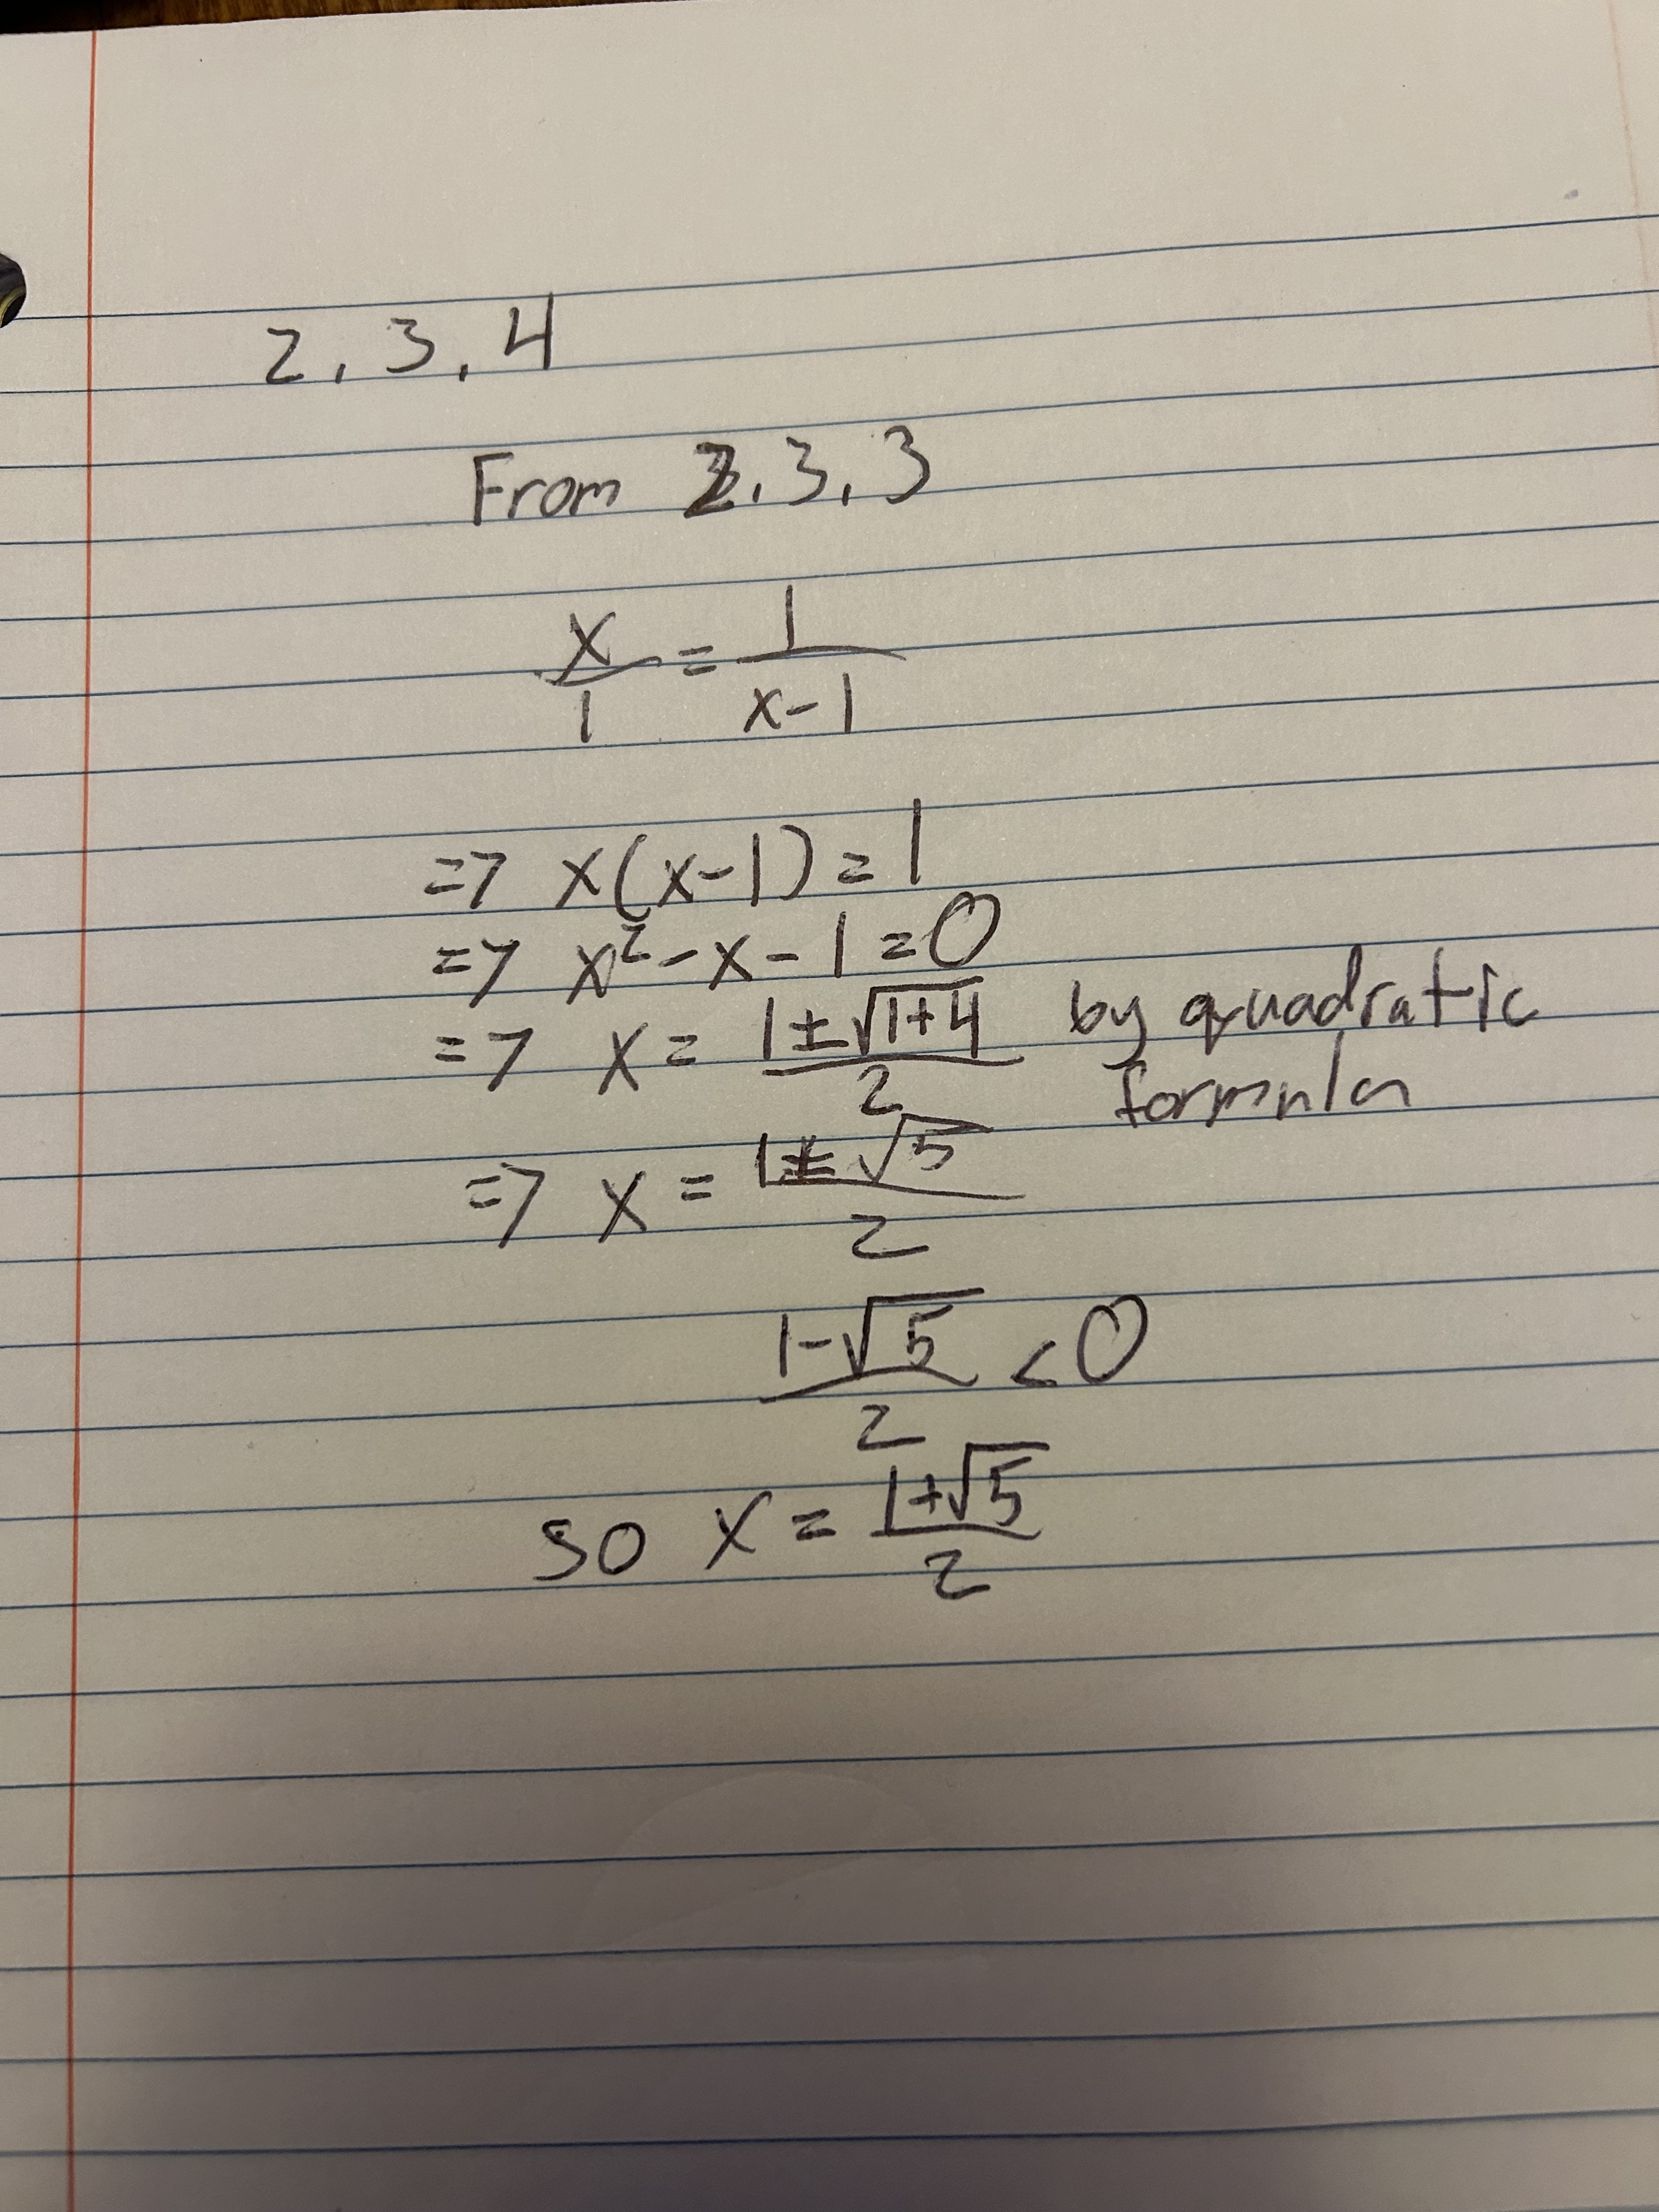 2.3.4
From 2.3.3
x/1 = 1/(x-1)
=> x(x-1)=1
=> x²-x-1=0
=> x = (1±√(1+4))/2 by quadratic
formula
=> x = (1±√5)/2
(1-√5)/2 < 0
so x = (1+√5)/2